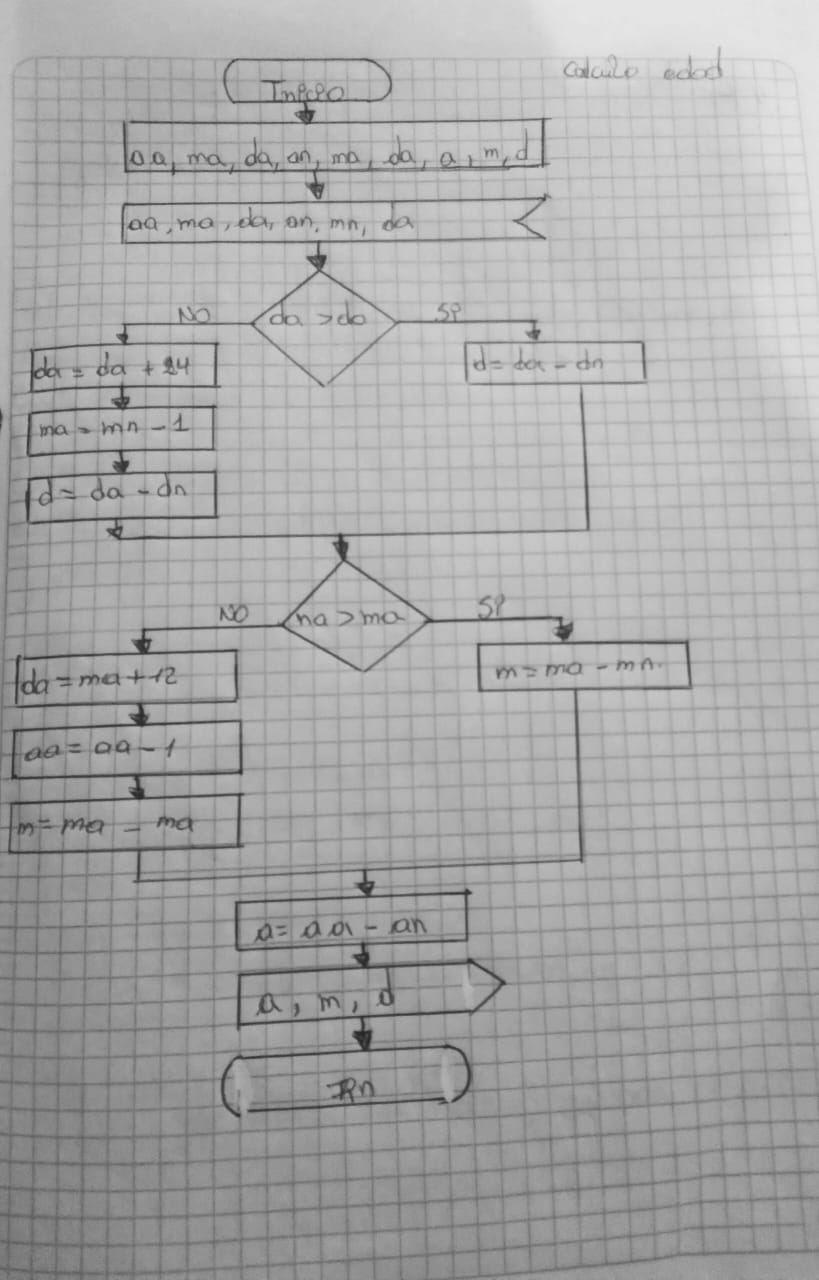 calculo edad
Inicio
aa, ma, da, an, ma, da, a, m, d
aa, ma, da, an, mn, da
NO
da > da
SI
da = da + 24
d = da - dn
ma = mn - 1
d = da - dn
NO
na > ma
SI
da = ma + 12
m = ma - mn.
aa = aa - 1
m = ma - ma
a = aa - an
a, m, d
Fin